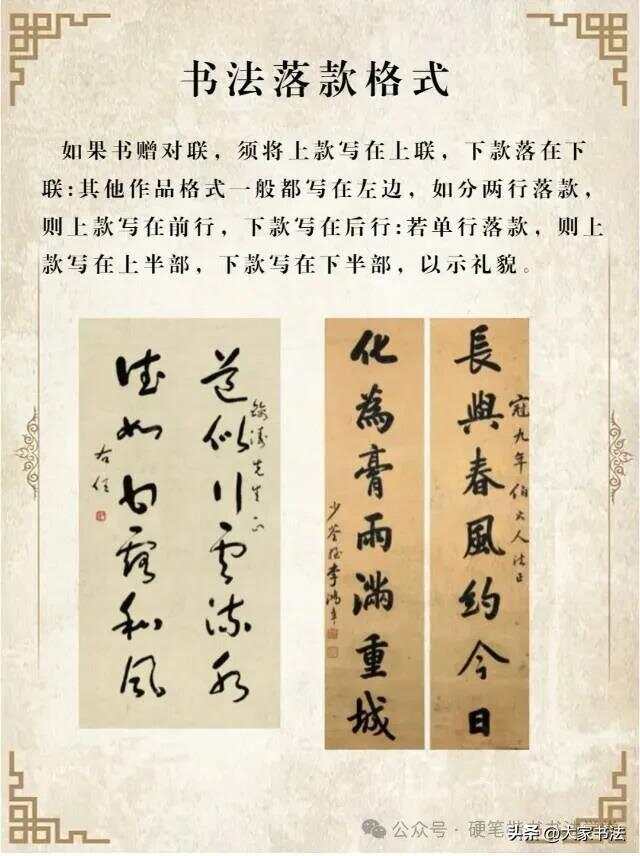 书法落款格式
如果书赠对联，须将上款写在上联，下款落在下
联:其他作品格式一般都写在左边，如分两行落款，
则上款写在前行，下款写在后行:若单行落款，则上
款写在上半部，下款写在下半部，以示礼貌。
道似行云流水
先生正
德如甘露和風
右任
長與春風約今日
冠九年伯大人法正
化為膏雨滿重城
少荃姪李鴻章
公众号 · 硬笔
头条 @大家书法